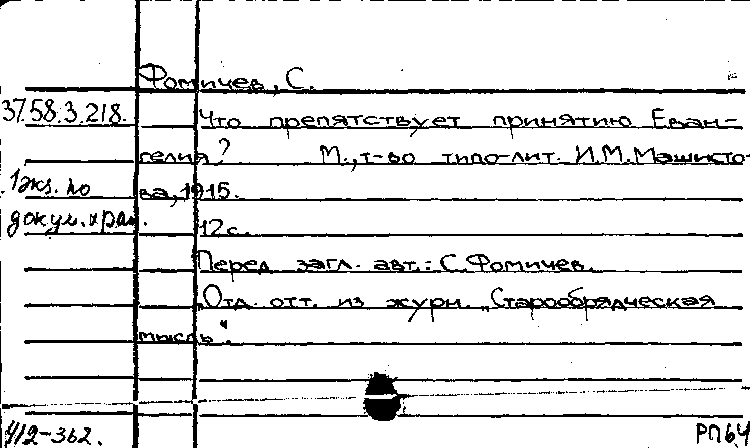 Фомичев, С.
37.58.3.218. Что препятствует принятию Еван-
гелия? М., т-во типо-лит. И.М. Машисто-
1экз. по ва, 1915.
докум. хран. 12 с.
Перед загл. авт.: С. Фомичев.
"Отд. отт. из журн. "Старообрядческая
мысль".
412-362. РП64